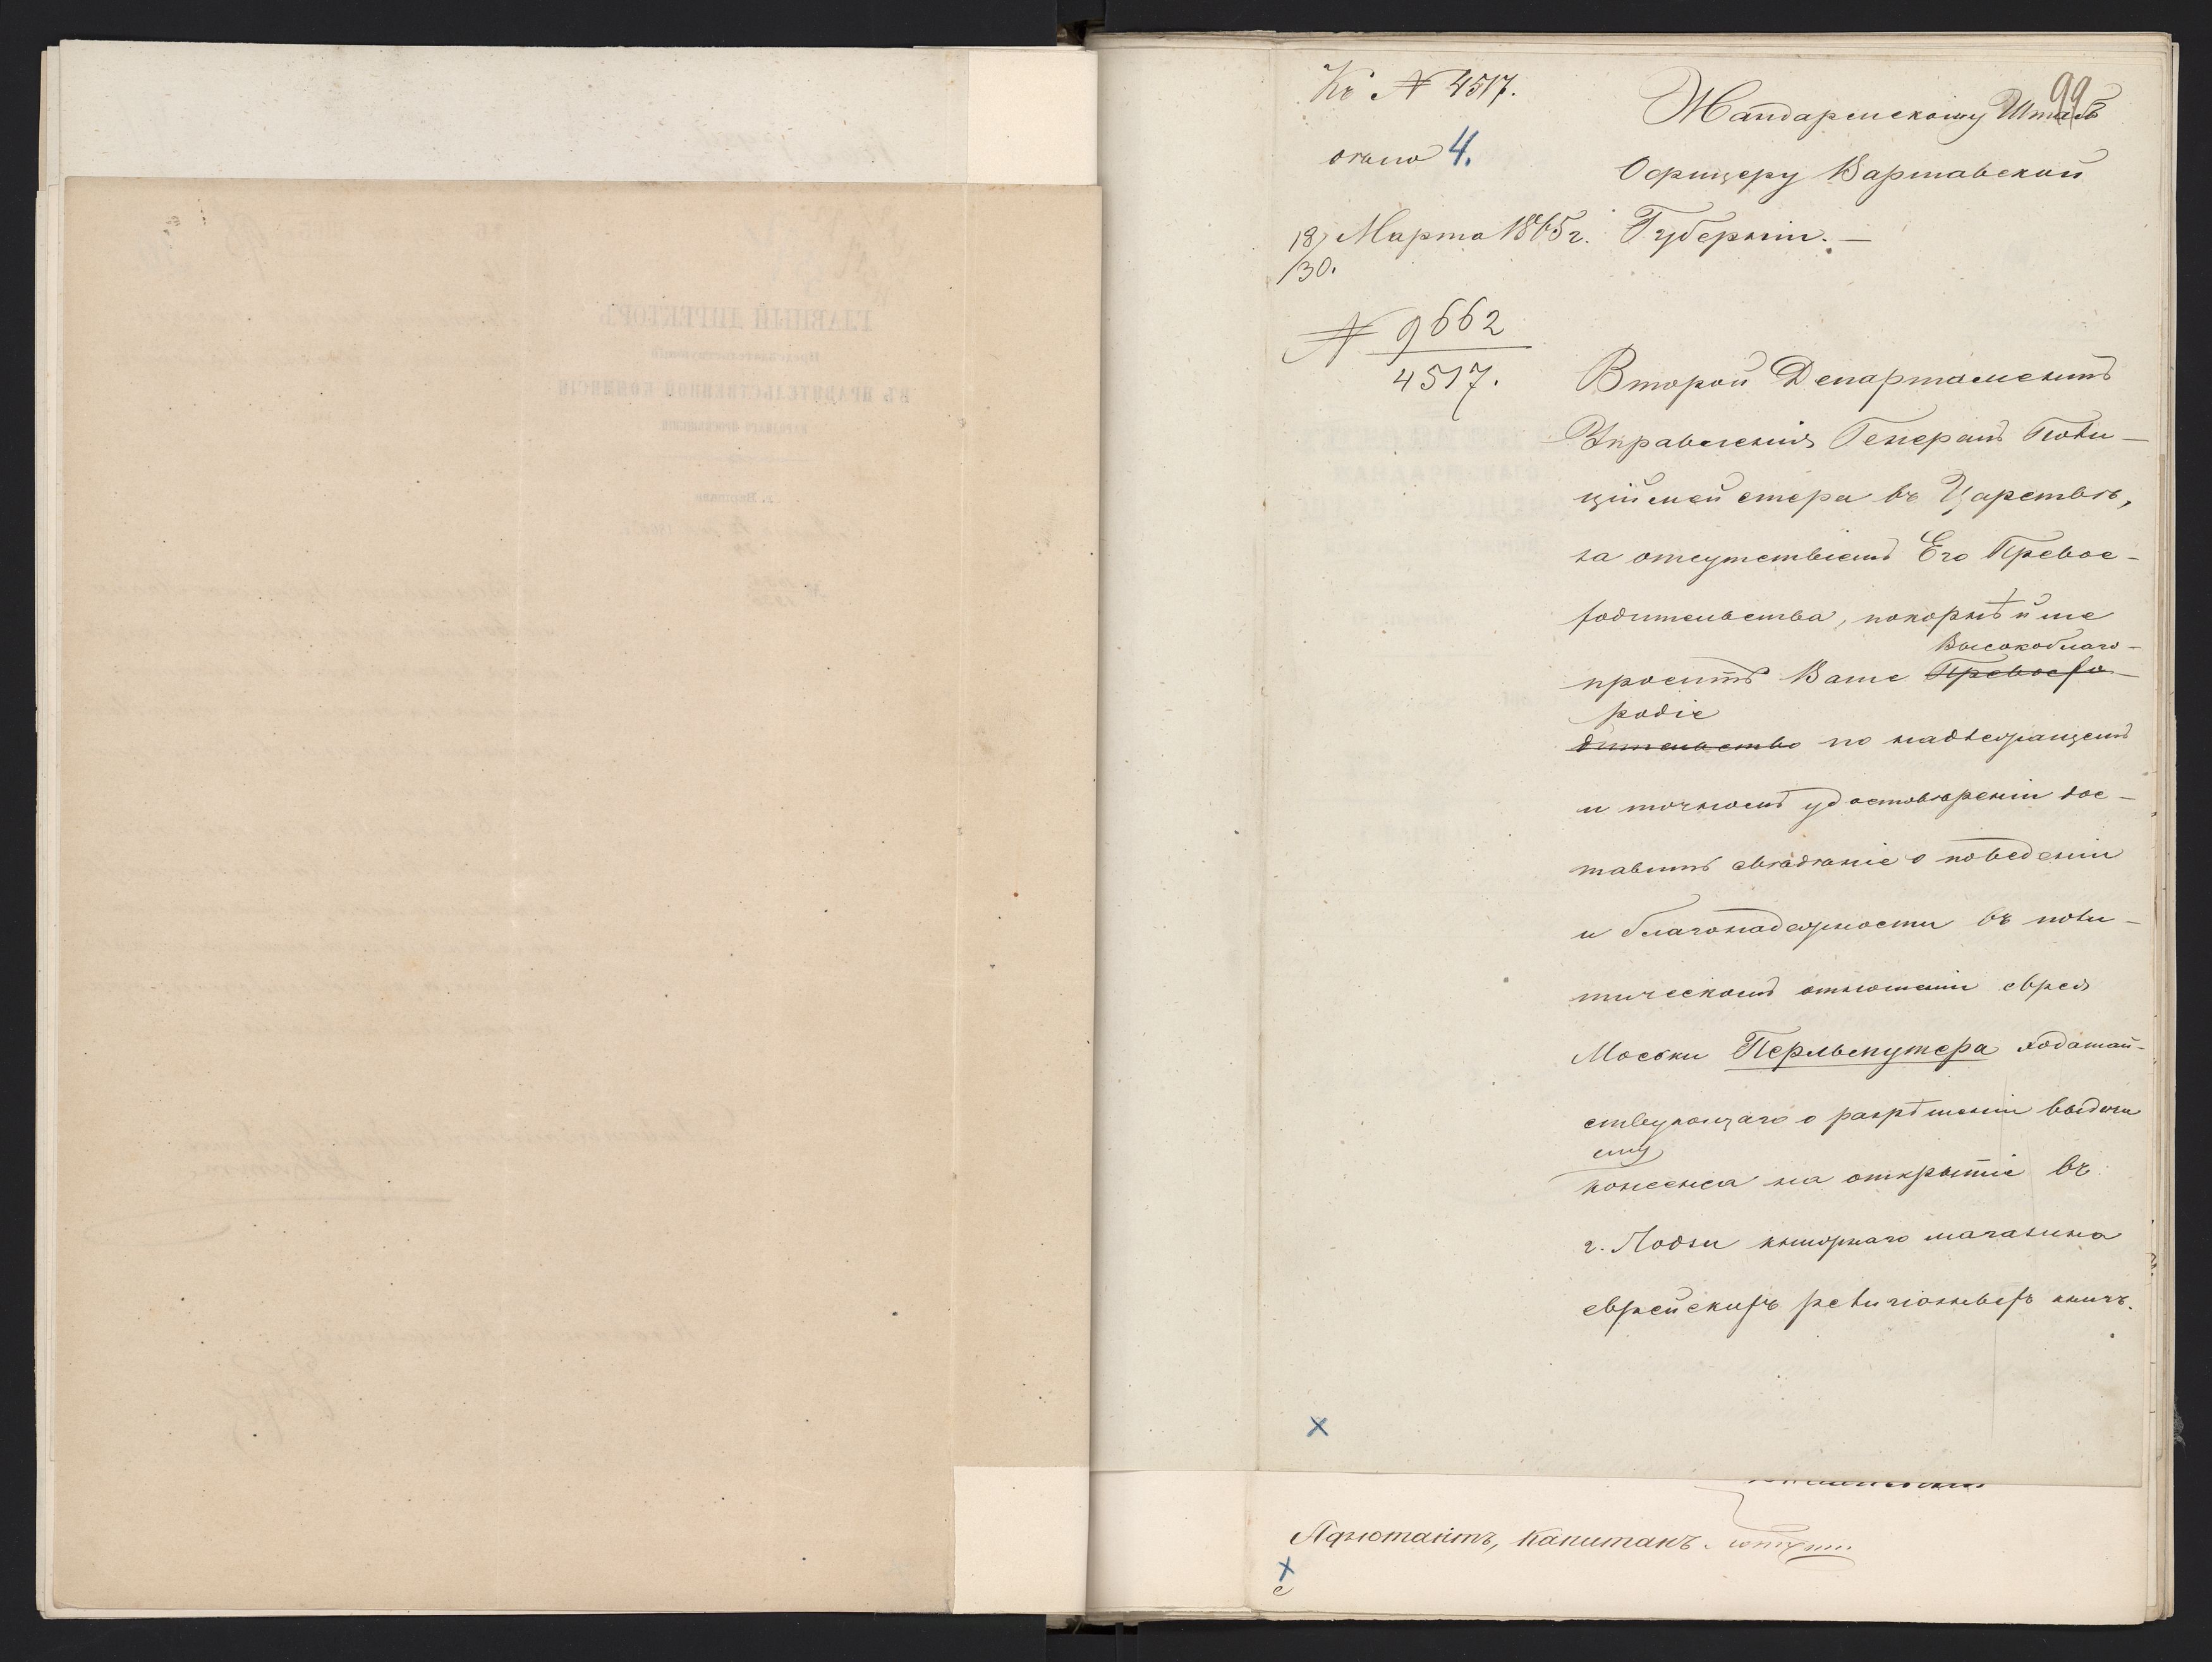 Къ № 4517.
99
Жандармскому Штабъ
Офицеру Варшавской
Губерніи. —
стио 4.
18/30. Марта 1865 г.
№ 9662
4517.
Второй Департаментъ
Управленія Генералъ Поли-
ціймейстера въ Царствѣ,
за отсутствіемъ Его Превос-
ходительства, покорнѣйше
проситъ Ваше ~~Превосхо-~~ Высокоблаго-
~~дительство~~ родіе по надлежащемъ
и точномъ удостовѣреніи дос-
тавить свѣдѣніе о поведеніи
и благонадежности въ поли-
тическомъ отношеніи еврея
Мосѣки Перльмутера ходатай-
ствующаго о разрѣшеніи выдачи
ему
консенса на открытіе въ
г. Лодзи книжнаго магазина
еврейскихъ религіозныхъ книгъ.
Адъютантъ, Капитанъ
ГЛАВНЫЙ ДИРЕКТОРЪ
Предсѣдательствующій
ВЪ ПРАВИТЕЛЬСТВЕННОЙ КОМИСІИ
НАРОДНАГО ПРОСВѢЩЕНІЯ
г. Варшава